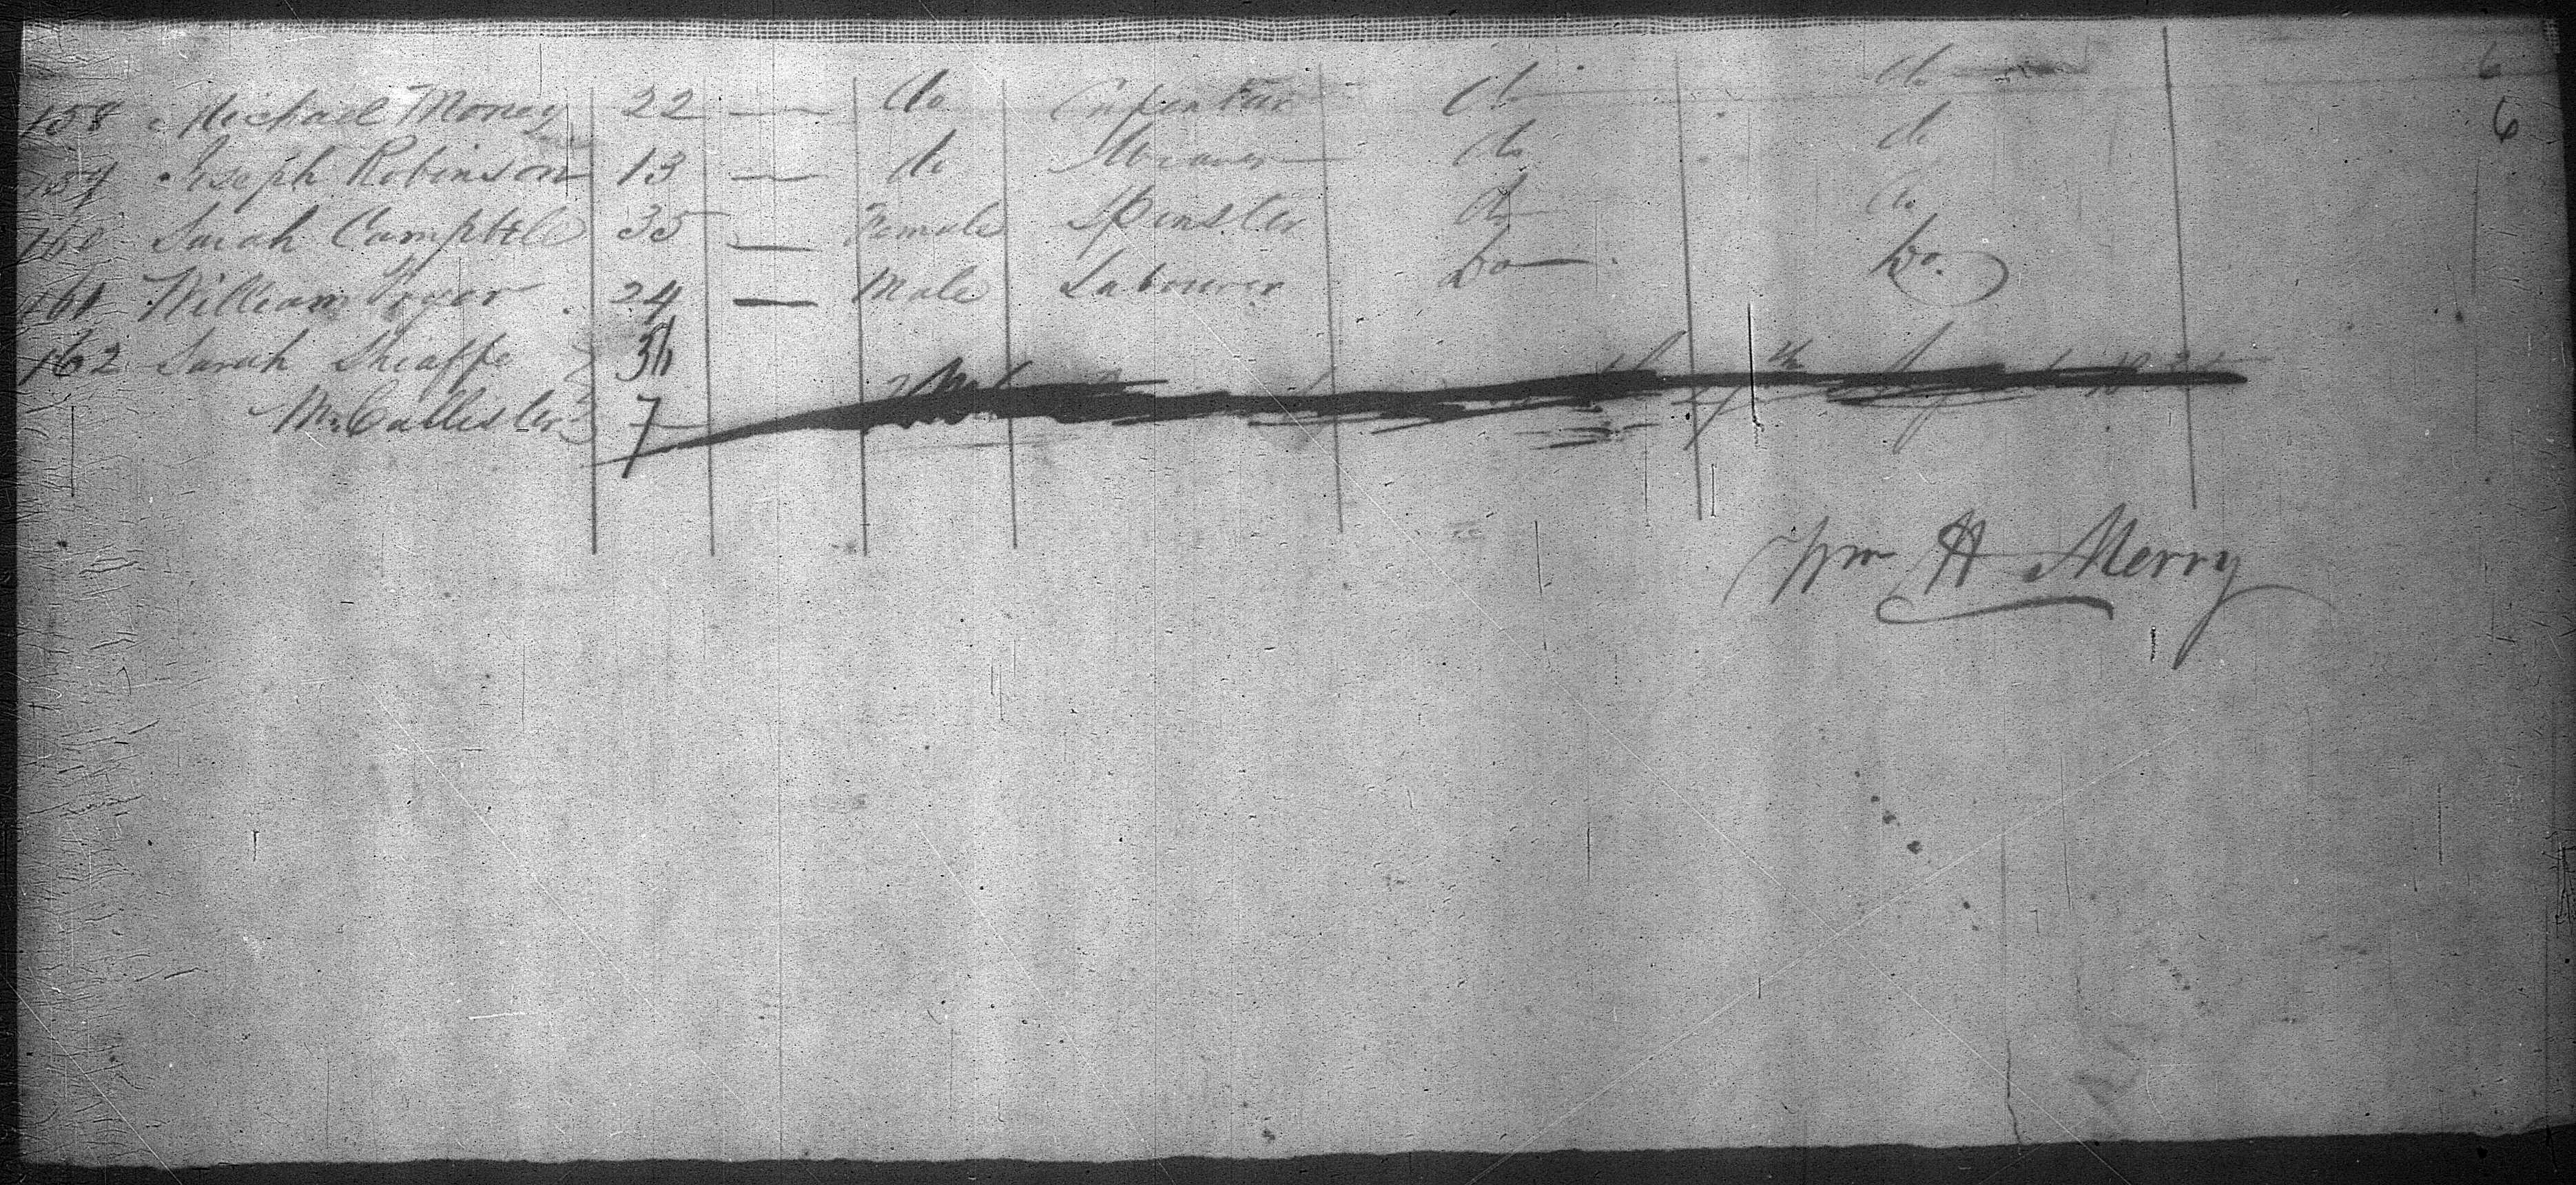 158 Michael Money 22 — do Carpenter do do 6
159 Joseph Robinson 13 — do Weaver do do 6
160 Sarah Campbell 35 — Female Spinster do do
161 William 24 — Male Labourer Do Do.
162 Sarah Sheaffe
McCallister 7
Wm H Merry